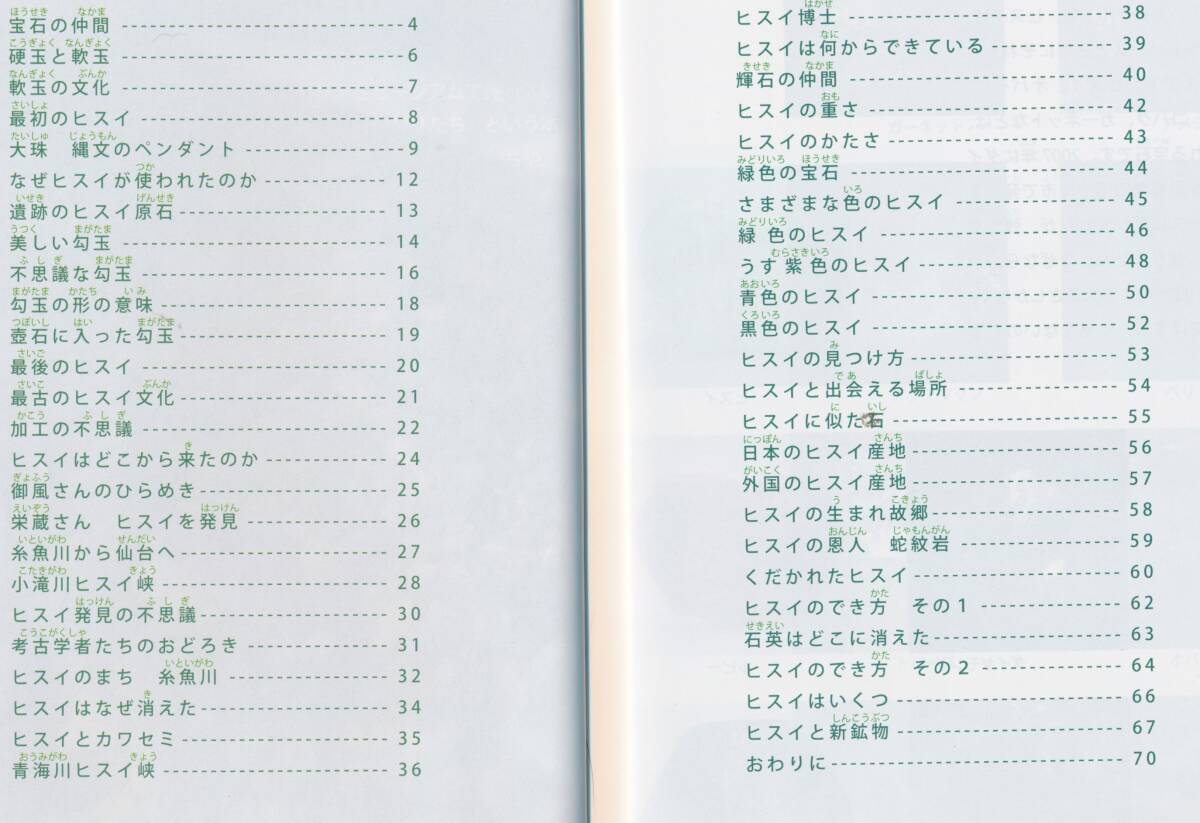 宝石の仲間 4
硬玉と軟玉 6
軟玉の文化 7
最初のヒスイ 8
大珠 縄文のペンダント 9
なぜヒスイが使われたのか 12
遺跡のヒスイ原石 13
美しい勾玉 14
不思議な勾玉 16
勾玉の形の意味 18
壺石に入った勾玉 19
最後のヒスイ 20
最古のヒスイ文化 21
加工の不思議 22
ヒスイはどこから来たのか 24
御風さんのひらめき 25
栄蔵さん ヒスイを発見 26
糸魚川から仙台へ 27
小滝川ヒスイ峡 28
ヒスイ発見の不思議 30
考古学者たちのおどろき 31
ヒスイのまち 糸魚川 32
ヒスイはなぜ消えた 34
ヒスイとカワセミ 35
青海川ヒスイ峡 36
ヒスイ博士 38
ヒスイは何からできている 39
輝石の仲間 40
ヒスイの重さ 42
ヒスイのかたさ 43
緑色の宝石 44
さまざまな色のヒスイ 45
緑色のヒスイ 46
うす紫色のヒスイ 48
青色のヒスイ 50
黒色のヒスイ 52
ヒスイの見つけ方 53
ヒスイと出会える場所 54
ヒスイに似た石 55
日本のヒスイ産地 56
外国のヒスイ産地 57
ヒスイの生まれ故郷 58
ヒスイの恩人 蛇紋岩 59
くだかれたヒスイ 60
ヒスイのでき方 その1 62
石英はどこに消えた 63
ヒスイのでき方 その2 64
ヒスイはいくつ 66
ヒスイと新鉱物 67
おわりに 70